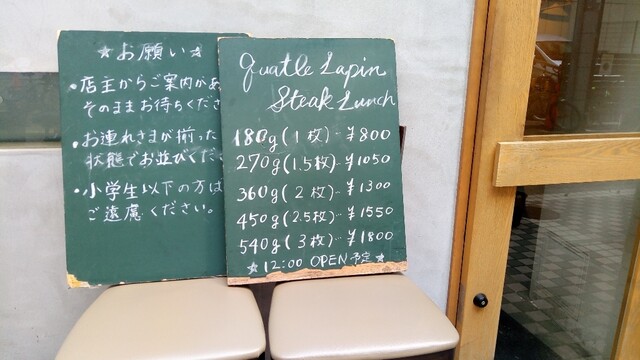 ☆お願い☆
・店主からご案内があ
そのままお待ちくださ
・お連れさまが揃った
状態でお並びくだ
・小学生以下の方は
ご遠慮ください。
quatle Lapin
Steak Lunch
180g(1枚)…¥800
270g(1.5枚)…¥1050
360g(2枚)…¥1300
450g(2.5枚)…¥1550
540g(3枚)…¥1800
☆12:00 OPEN予定☆